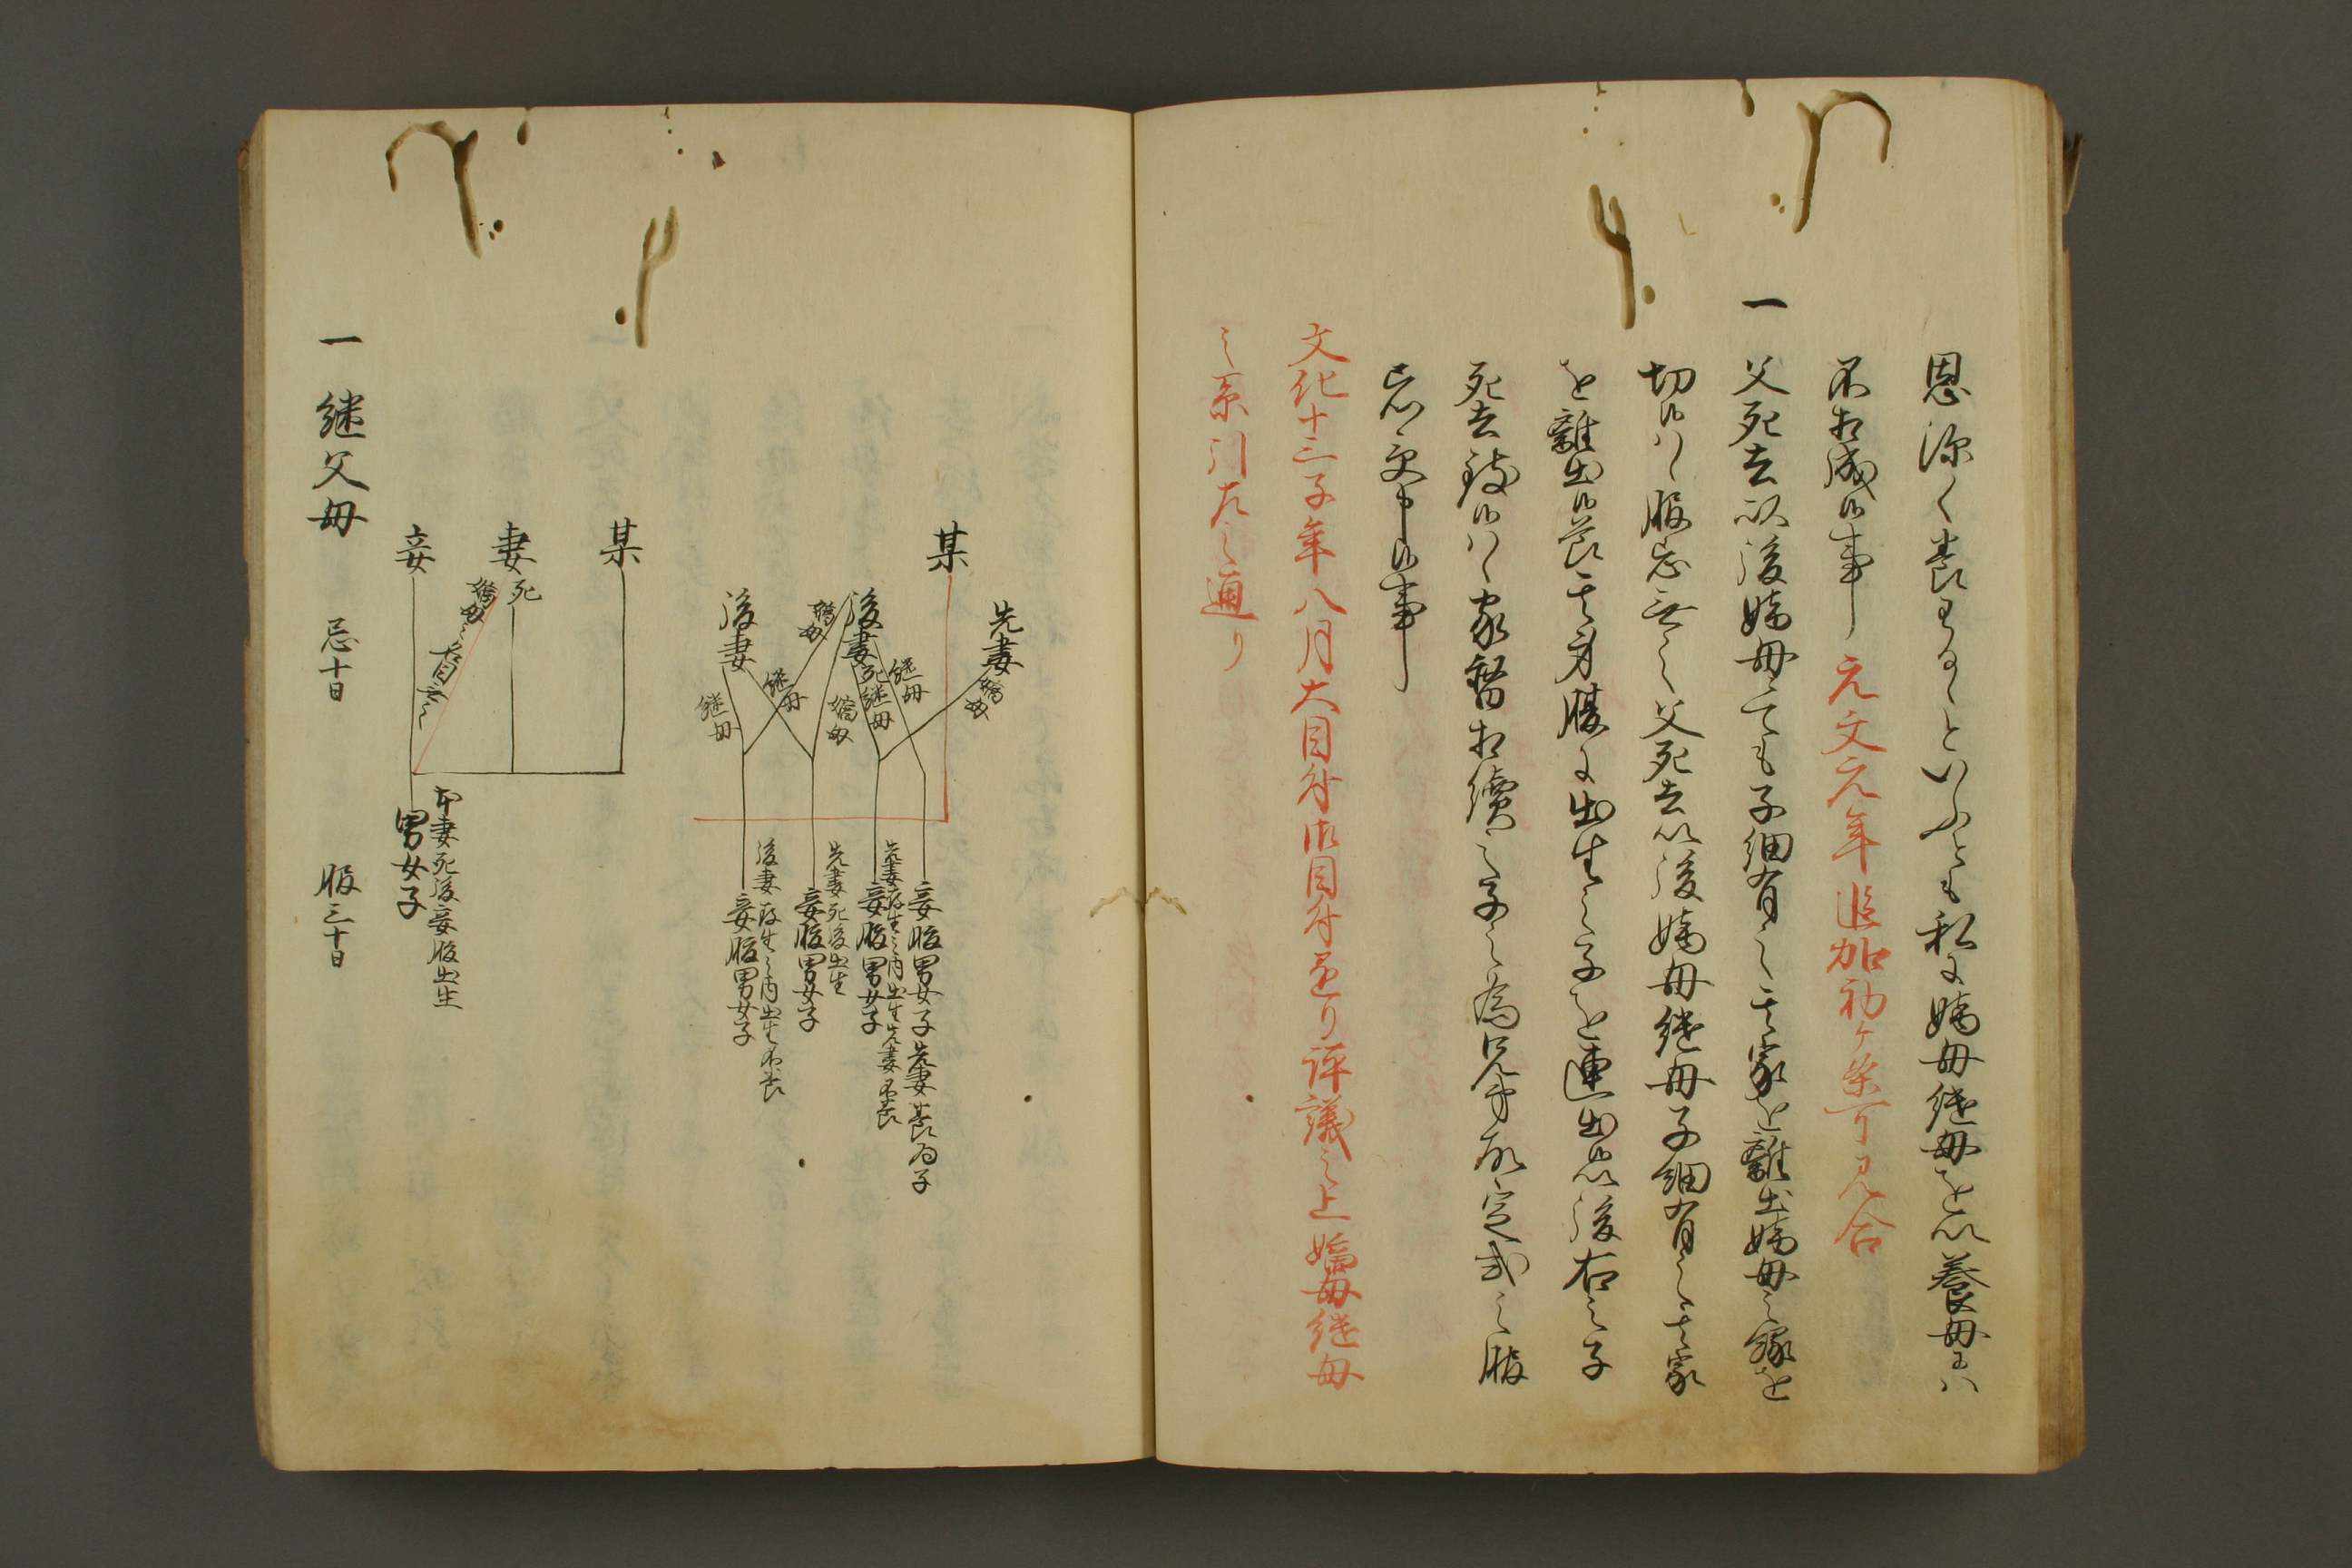 恩深く養るゝといふとも私に嫡母継母を以養母にハ
不相成候事 元文元年追加初ヶ条可見合
一 父死去以後嫡母ニても子細有之其家を離出嫡母之縁を
切候ハヽ服忌無之父死去以後嫡母継母子細有之其家
を離出候節其身腹に出生之子を連出候以後右之子
死去致候ハヽ家督相続之子之為兄弟故定式之服
忌受申候事
文化十三子年八月大目付御目付より評議之上嫡母継母
之系引左之通り
某
先妻
嫡母
後妻死
継母
継母
嫡母
嫡母
後妻
継母
継母
妾腹男女子先妻養為子
先妻存生之内出生先妻不養
妾腹男女子
先妻死後出生
妾腹男女子
後妻存生之内出生不養
妾腹男女子
某
妻死
嫡母之名目無之
妾
本妻死後妾腹出生
男女子
一 継父母 忌十日 服三十日